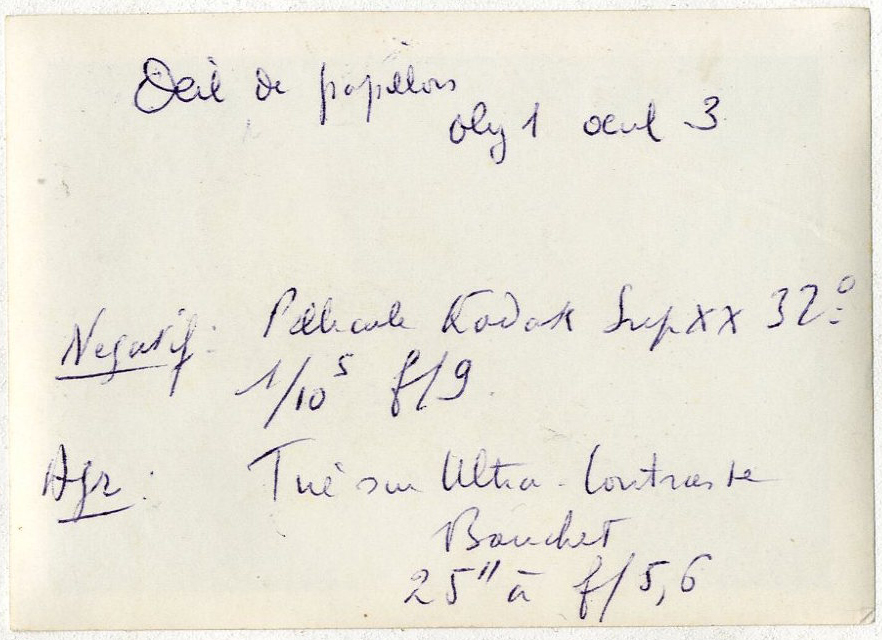 Oeil de papillon
obj 1 ocul 3
Negatif: Pellicule Kodak Sup XX 32°
1/10 s f/9
Agr: Tiré sur Ultra-Contraste
Bauchet
25" à f/5,6